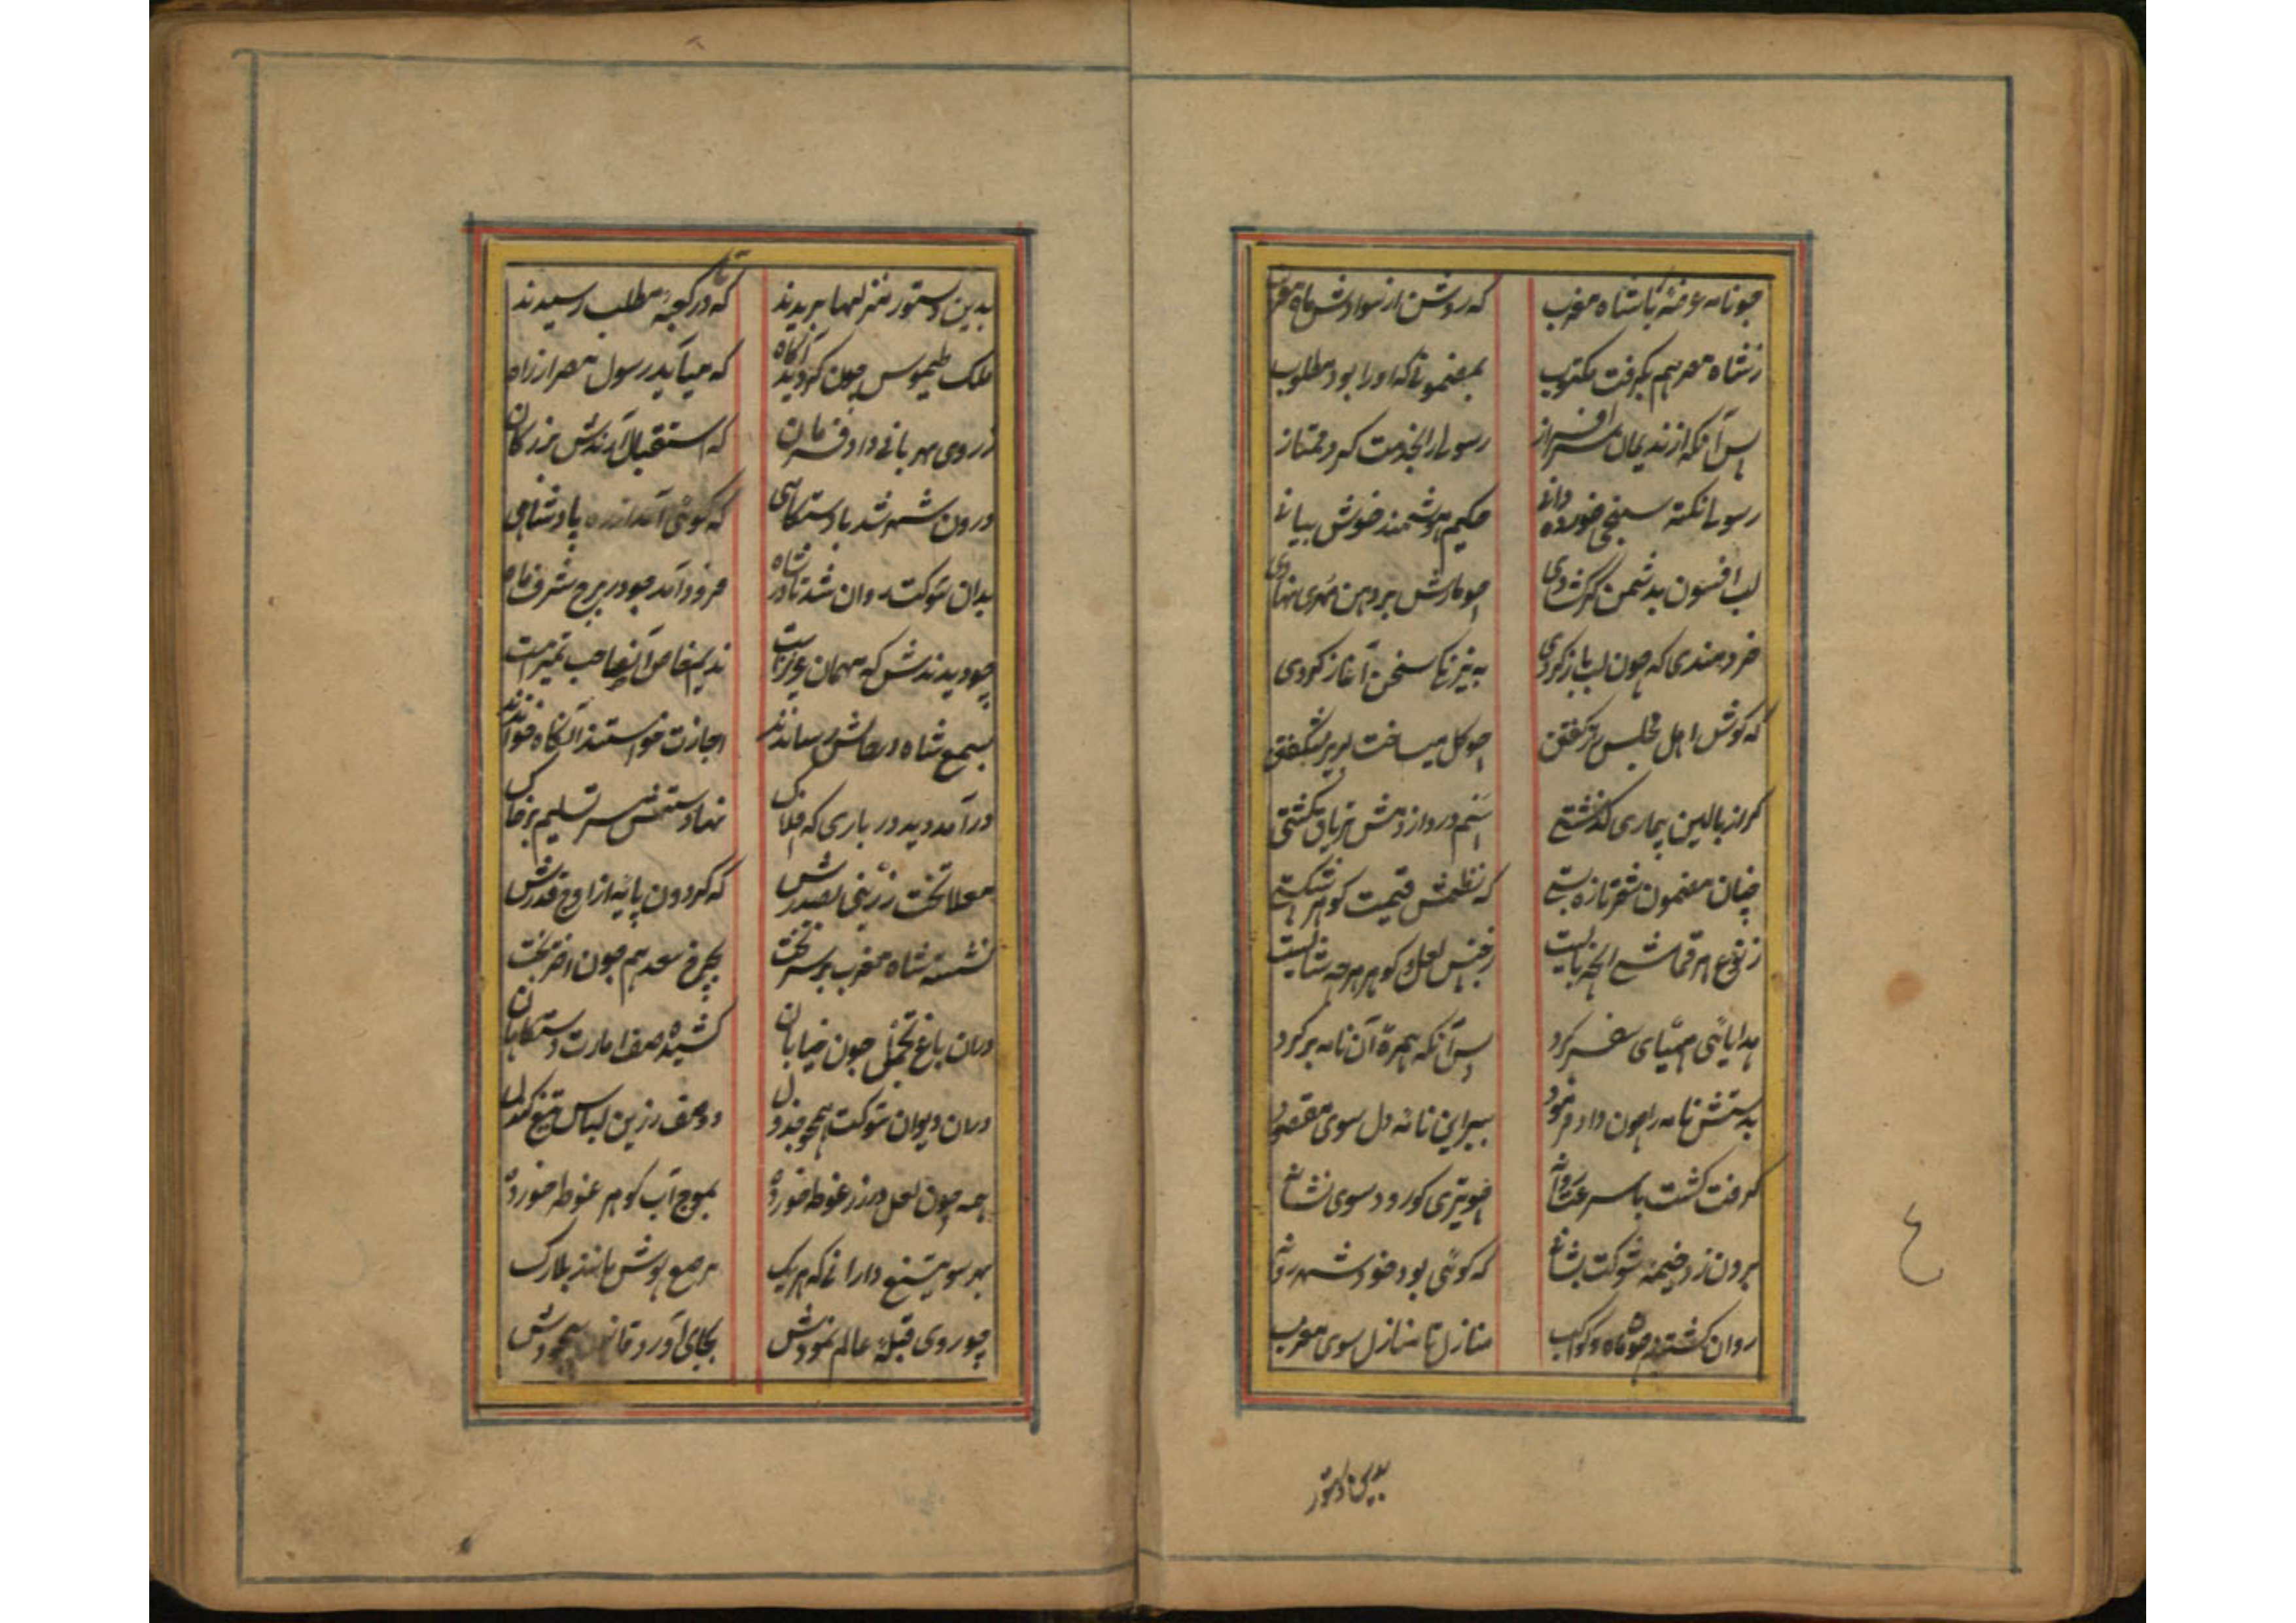 چو نامه عرضه با شاه مغرب که روشن از سوادش ماه مغرب
ز شاه مصر هم بگرفت مکتوب بمضمونی که او را بود مطلوب
پس آنکه از ندیمان سرافراز رسولی را بخدمت کرد ممتاز
رسولی نکته سنجی خورده دانی حکیم هوشمند خوش بیانی
لب افسون بدشمن گر کشادی چو مارش بر دهن مهری نهادی
خردمندی که چون لب باز کردی به نیرنگ سخن آغاز کردی
که گوش اهل مجلس گفتن چو گل میساخت لبریز شگفتن
گر از بالین بیماری گذشتی درد از دمش تریاق گشتی
چنان مضمون شعر تازه بستی که نظمش قیمت گوهر شکستی
ز نوع هر قماش انچه بایست ز جنس لعل و گوهر هرچه شایست
هدایائی مهیای سفر کرد پس آنکه همره آن نامه بر کرد
بدستش نامه را چون داد فرمود ببر این نامه دل سوی مقصود
گرفت گشت با سرعت روانه چو تیری کو رود سوی نشانه
برون زد خیمه شوکت بشانی که گوئی بود خود شهر روانی
روان گشته چو ماه و کوکب منازل تا منازل سوی مغرب
بدین دستور
بدین دستور منزلها بریدند که تا در کعبه مطلب رسیدند
ملک طیموس چون گردید آگاه که میآید رسول مصر از راه
ز روی مهربانی داد فرمان که استقبال آرندش بزرگان
درون شهر شد با دستگاهی که گوئی آمد از ره پادشاهی
بدان شوکت روان شد تا در شاه فرود آمد چو در برج شرف ماه
چو دیدندش که مهمان عزیز است ندیم خاص آن صاحب تمیز است
بسمع شاه در حالش رساندند اجازت خواستند آنگاه خواندند
درآمد دید درباری که افلاک نهادستش سر تسلیم بر خاک
معلا تخت زرینی بصدرش که گردون پایه از اوج قدرش
نشسته شاه مغرب بر سر تخت بچرخ سعد هم چون اختر بخت
در آن باغ تجمل چون خیابان کشیده صف امارت دستگاهان
در آن دیوان شوکت همچو جدول دو صف زرین لباس تیغ
همه چون لعل در زر غوطه خورده بموج آب گوهر غوطه خورده
بهر سو تیغ دارانی که هریک مرصع پوش مانند بلارک
چو روی قبله عالم نمودش بجای آورد سجودش